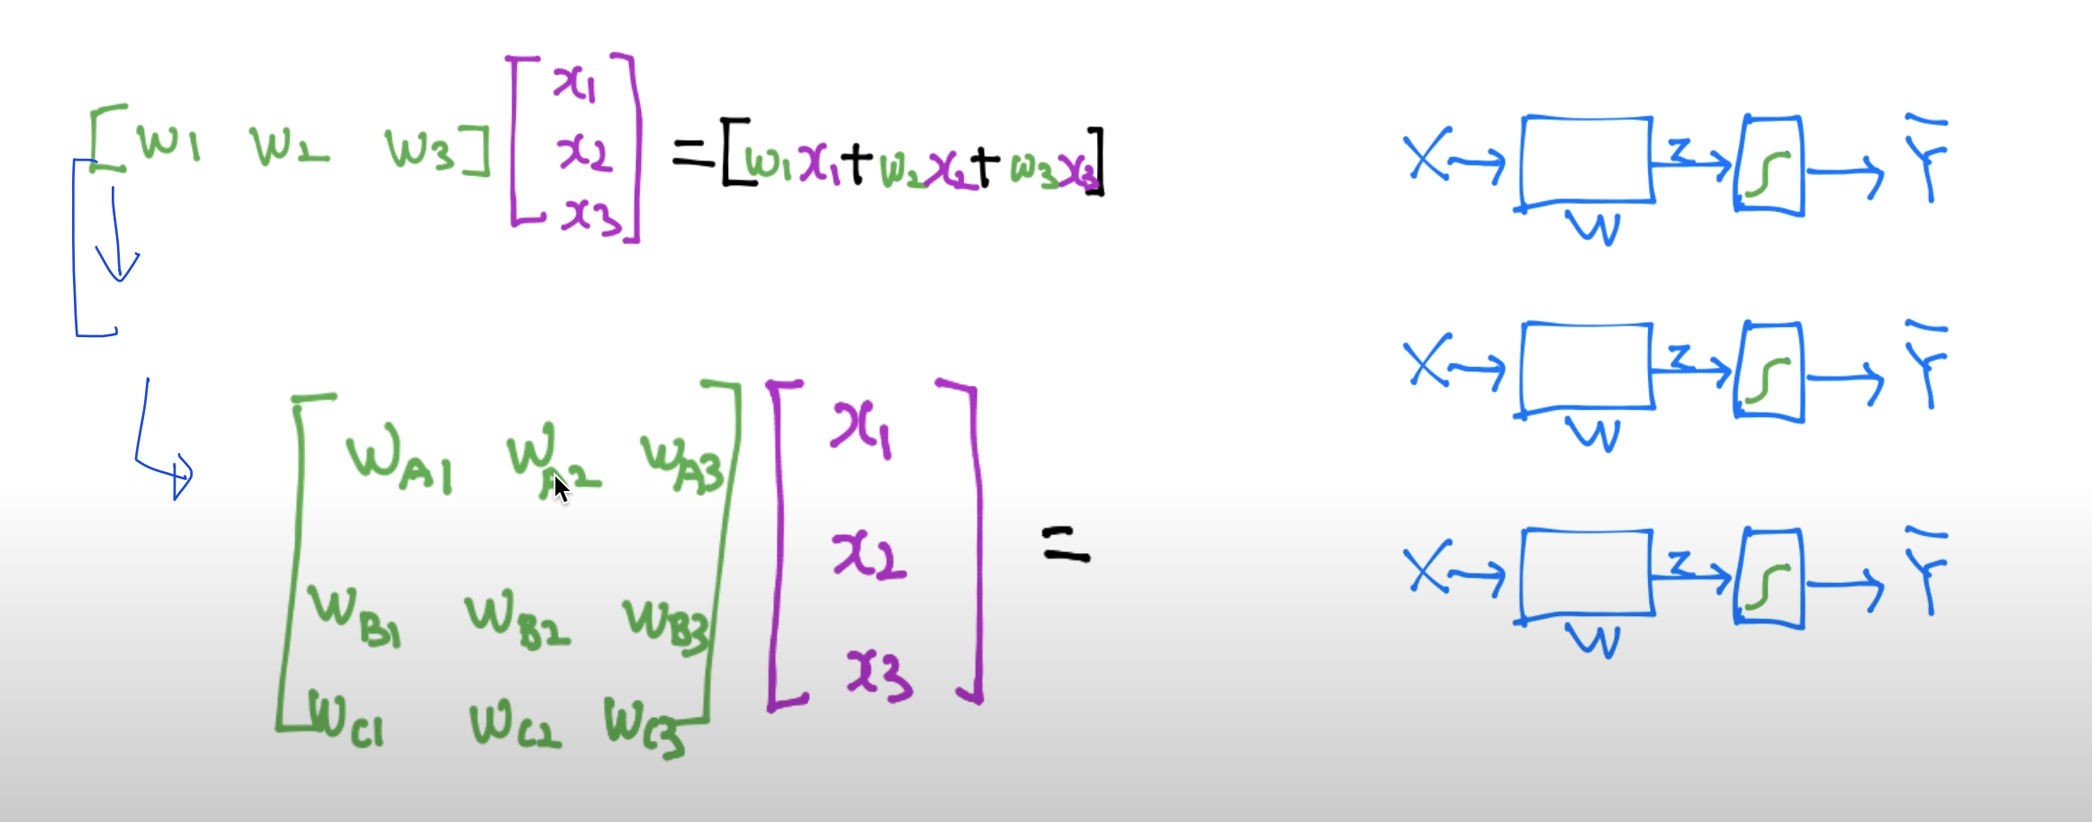 [ w1 w2 w3 ] [ x1 x2 x3 ] = [ w1x1 + w2x2 + w3x3 ]
[ WA1 WA2 WA3
WB1 WB2 WB3
WC1 WC2 WC3 ] [ x1 x2 x3 ] =
X → W Z → ∫ → Ȳ
X → W Z → ∫ → Ȳ
X → W Z → ∫ → Ȳ